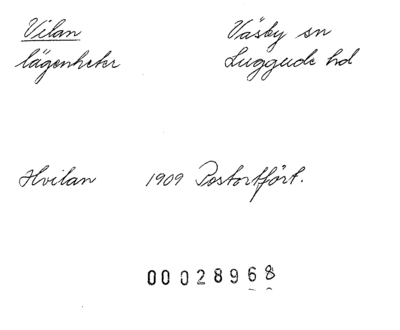 Vilan Väsby sn
lägenheter Luggude hd
Hvilan 1909 Postortfört.
00028968